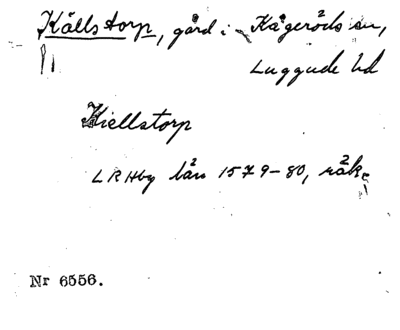 Källstorp, gård i Kågeröds sn,
Luggude hd
Kiellstorp
LRHbg län 1579-80, räk.
Nr 6556.